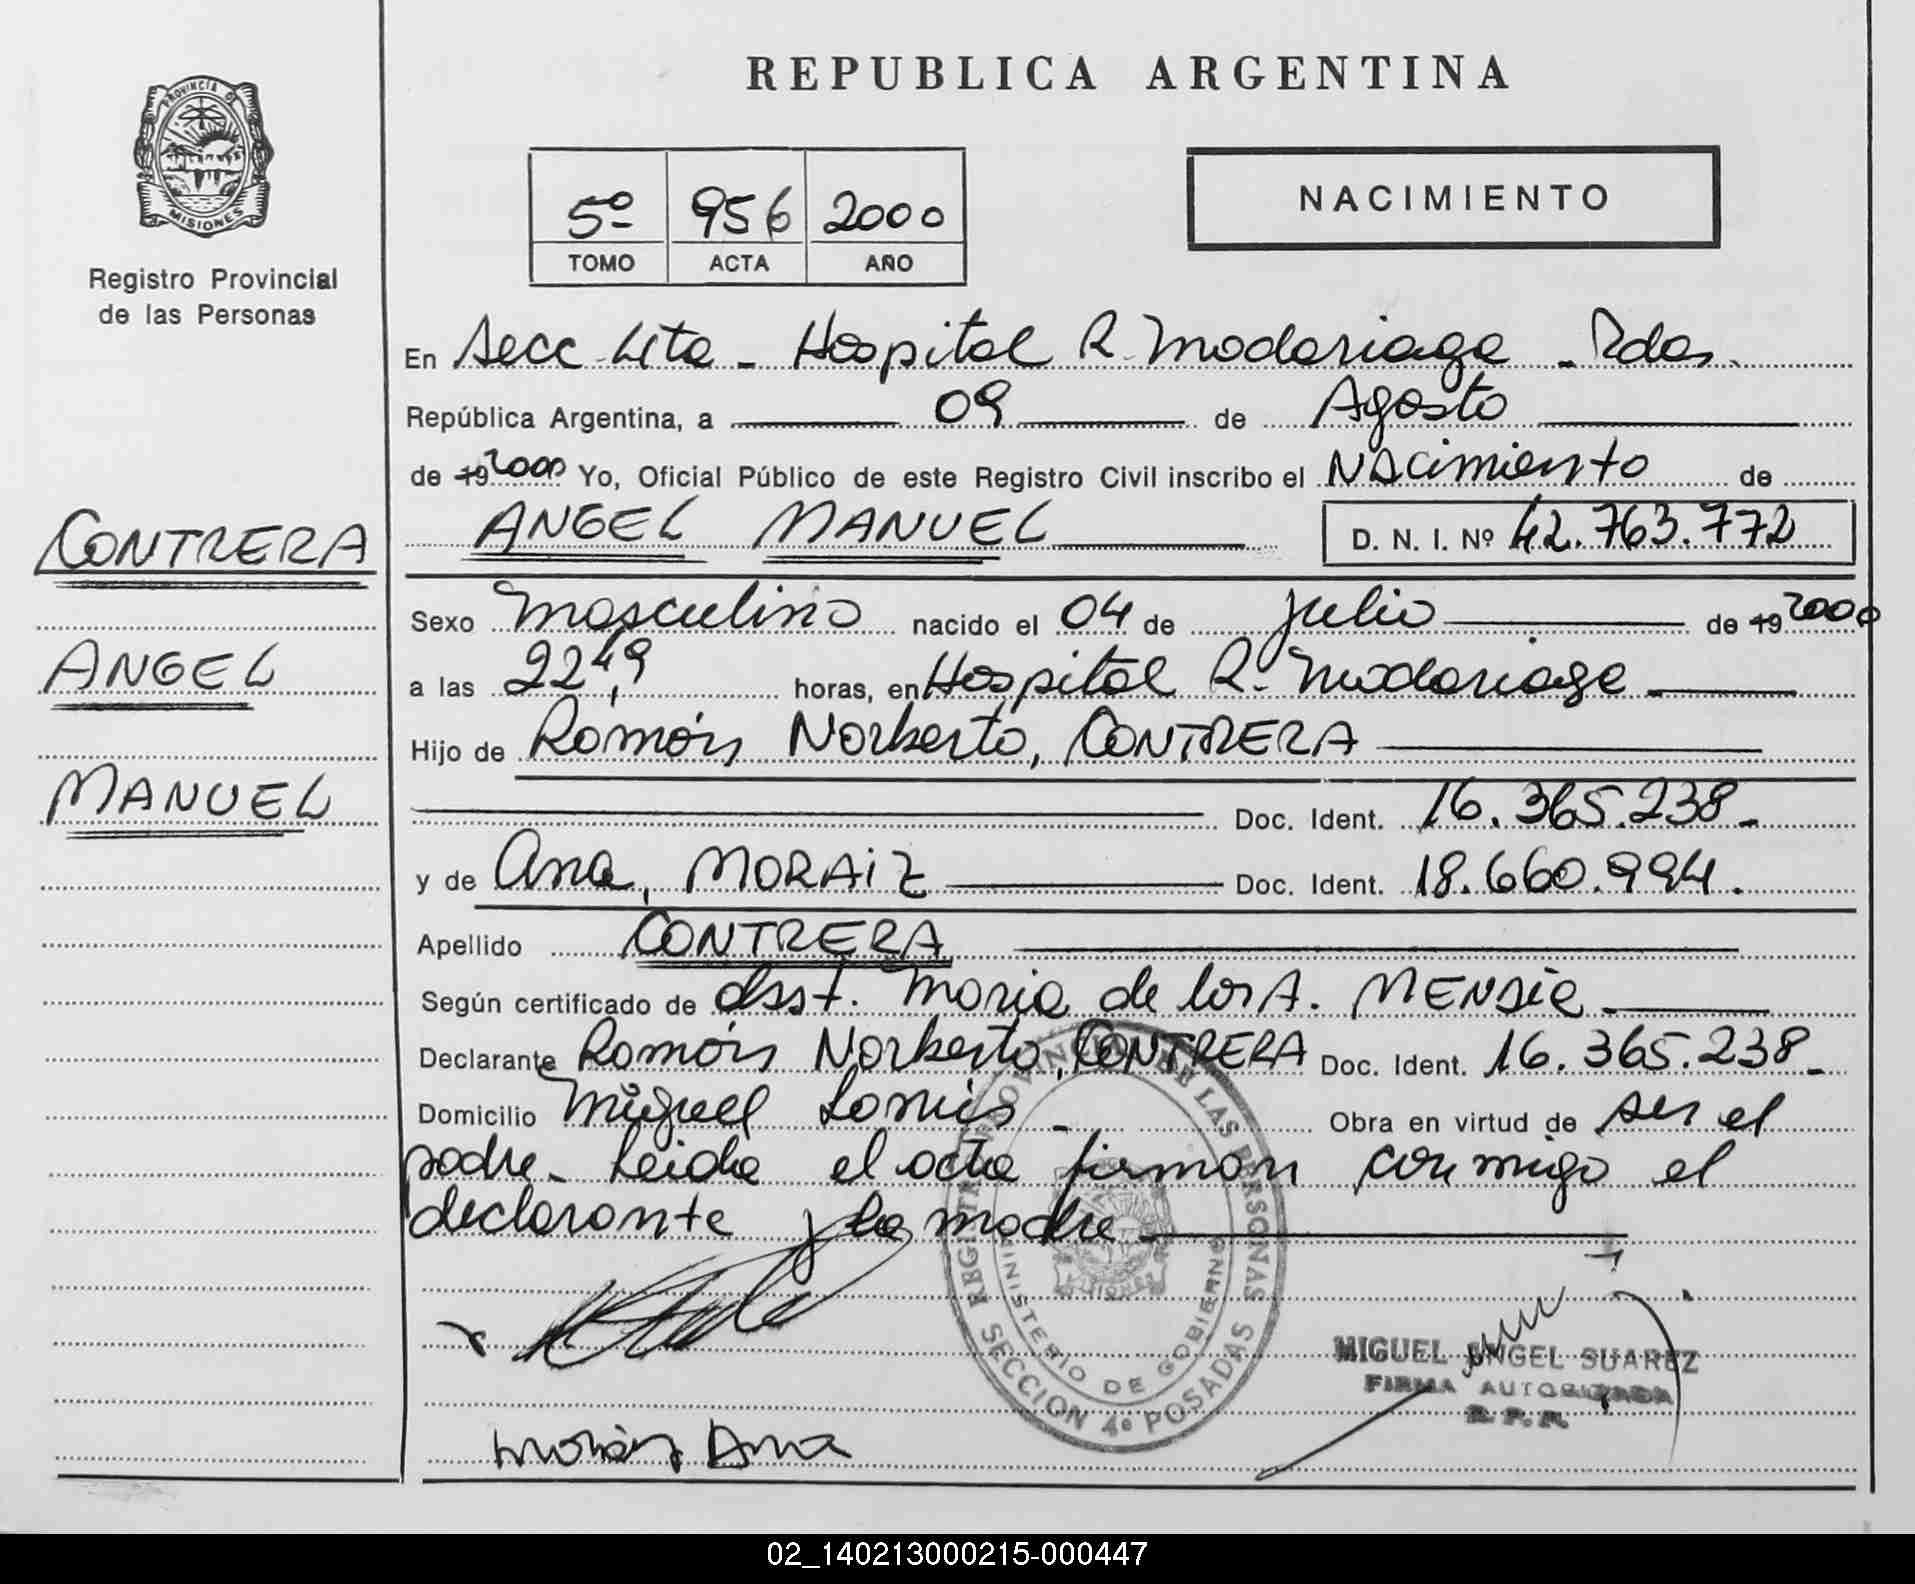 PROVINCIA D
MISIONES
Registro Provincial
de las Personas
CONTRERA
ANGEL
MANUEL
REPUBLICA ARGENTINA
5º 956 2000
TOMO ACTA AÑO
NACIMIENTO
En Secc 4ta - Hospital R. Madariaga - Pdas.
República Argentina, a 09 de Agosto
de 19 2000 Yo, Oficial Público de este Registro Civil inscribo el Nacimiento de
ANGEL MANUEL D. N. I. Nº 42.763.772
Sexo Masculino nacido el 04 de Julio de 19 2000
a las 22,49 horas, en Hospital R. Madariaga
Hijo de Ramón Norberto, CONTRERA
Doc. Ident. 16.365.238-
y de Ana, MORAIZ Doc. Ident. 18.660.994.
Apellido CONTRERA
Según certificado de Obst. Maria de los A. MENDIE
Declarante Ramón Norberto, CONTRERA Doc. Ident. 16.365.238-
Domicilio Miguel Lanús - Obra en virtud de ser el
padre- Leida el acta firman conmigo el
declarante y la madre
REGISTRO PROVINCIAL DE LAS PERSONAS
MINISTERIO DE GOBIERNO
SECCION 4º POSADAS
MIGUEL ANGEL SUAREZ
FIRMA AUTORIZADA
R. P. P.
Ana
02_140213000215-000447